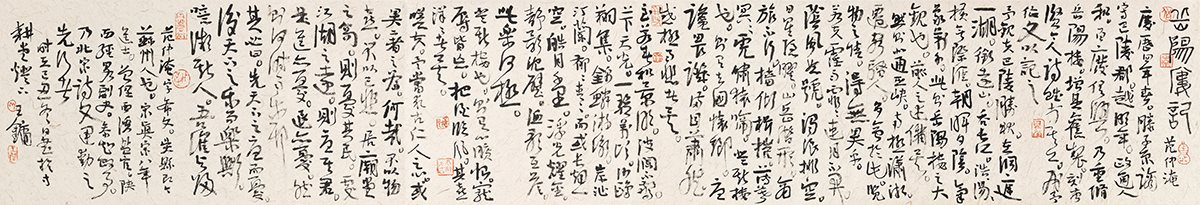 岳陽樓記 范仲淹
慶曆四年春。滕子京謫
守巴陵郡。越明年。政通人
和。百廢俱興。乃重修
岳陽樓。增其舊製。刻唐
賢今人詩賦于其上。屬予
作文以記之。
予觀夫巴陵勝狀。在洞庭
一湖。銜遠山。吞長江。浩浩湯
湯。橫無際涯。朝暉夕陰。氣
象萬千。此則岳陽樓之大
觀也。前人之述備矣。
然則北通巫峽。南極瀟湘。
遷客騷人。多會于此。覽
物之情。得無異乎。
若夫霪雨霏霏。連月不開。
陰風怒號。濁浪排空。
日星隱曜。山岳潛形。商
旅不行。檣傾楫摧。薄暮
冥冥。虎嘯猿啼。登斯樓
也。則有去國懷鄉。憂
讒畏譏。滿目蕭然。
感極而悲者矣。
至若春和景明。波瀾不驚。
上下天光。一碧萬頃。沙鷗
翔集。錦鱗游泳。岸芷
汀蘭。郁郁青青。而或長煙一
空。皓月千里。浮光耀金。
靜影沉璧。漁歌互答。
此樂何極。
登斯樓也。則有心曠神怡。寵
辱皆忘。把酒臨風。其喜
洋洋者矣。
嗟夫。予嘗求古仁人之心。或
異二者之為。何哉。不以物
喜。不以己悲。居廟堂
之高。則憂其民。處
江湖之遠。則憂其君。
是進亦憂。退亦憂。然
則何時而樂耶。
其必曰。先天下之憂而憂。
後天下之樂而樂歟。
噫。微斯人。吾誰與歸。
范仲淹。字希文。
蘇州人也。宋真宗八年
進士。
乃北宋詩文運動之
先行者。
時在己丑冬日
耕堂燈下 王鏞